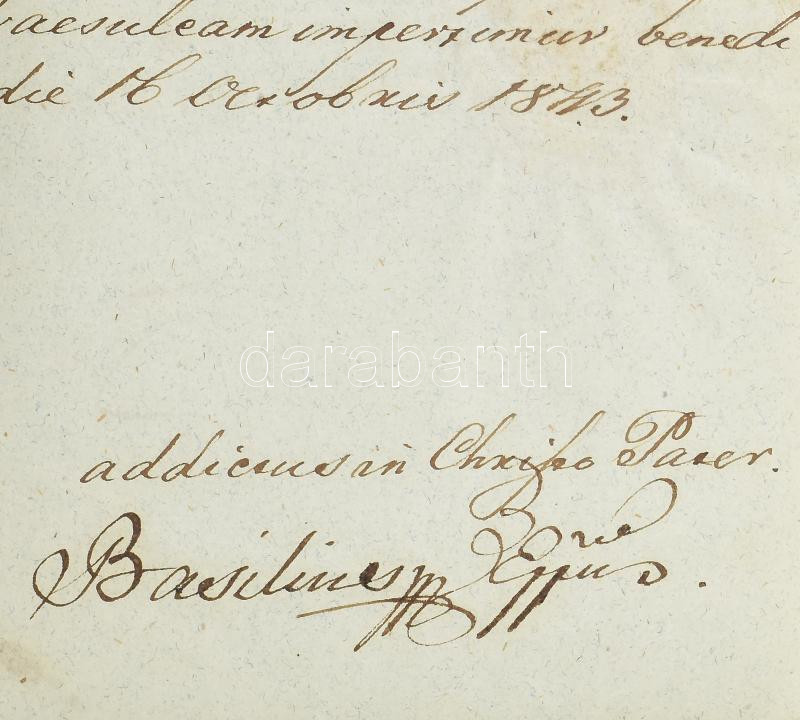 aesuleam impertimur benedi
die 16 Octobris 1843.
darabanth
addictus in Christo Pater.
Basilius Eppus.